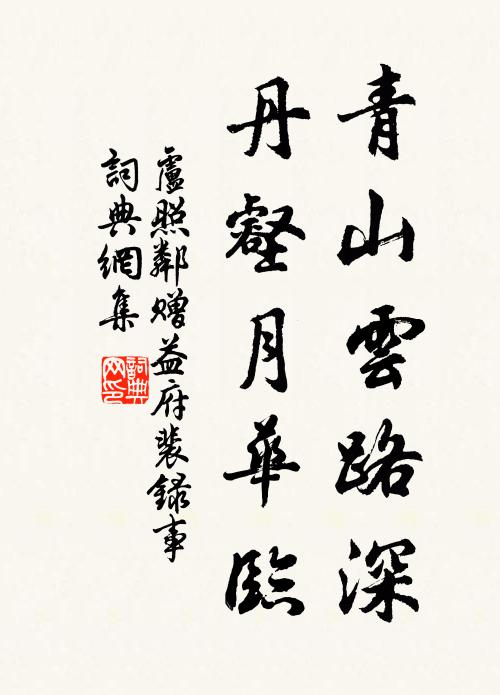 青山雲路深
丹壑月華臨
盧照鄰贈益府裴錄事
詞典網集
詞典網印